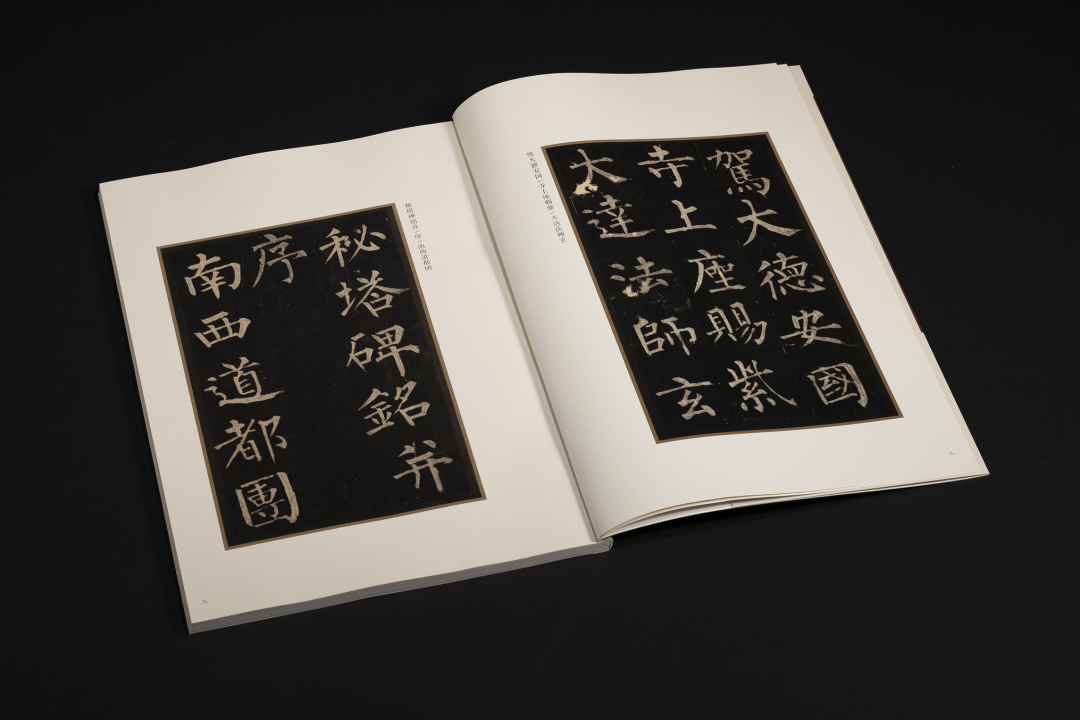 駕大德安國
寺上座賜紫
大達法師玄
驾大德安国/寺上座赐紫/大达法师玄
二
秘塔碑铭并/序/南西道都团
秘塔碑銘并
序
南西道都團
三